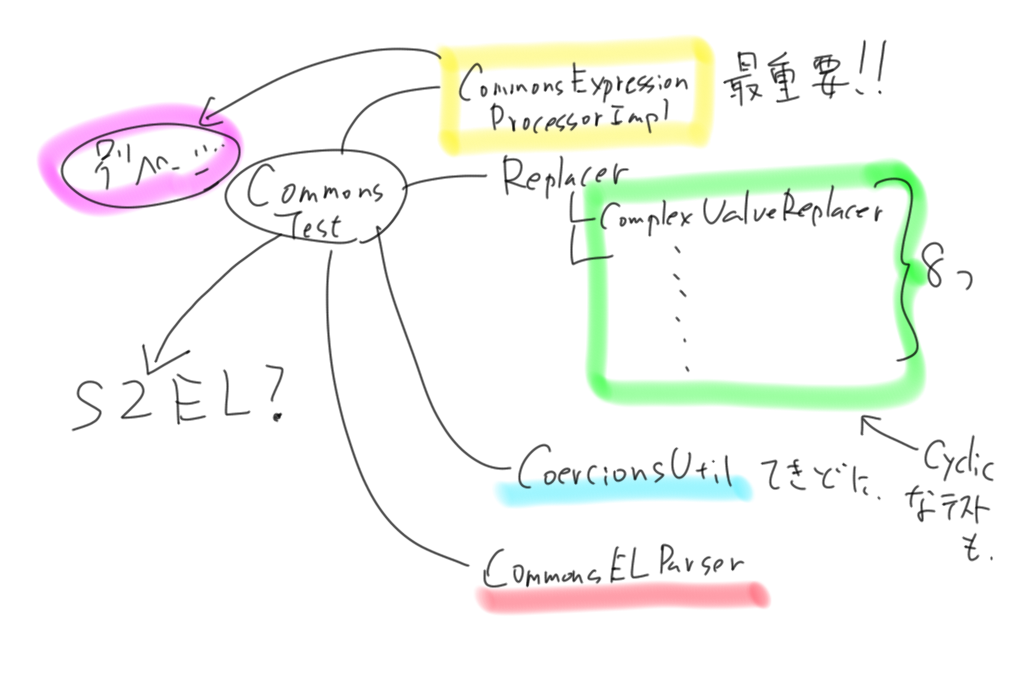 CommonsExpression
ProcessorImpl
最重要!!
別ペ
Commons
Test
Replacer
ComplexValueReplacer
8つ
S2EL?
CoercionsUtil
てきどに.
Cyclic
なテスト
も.
CommonsELParser